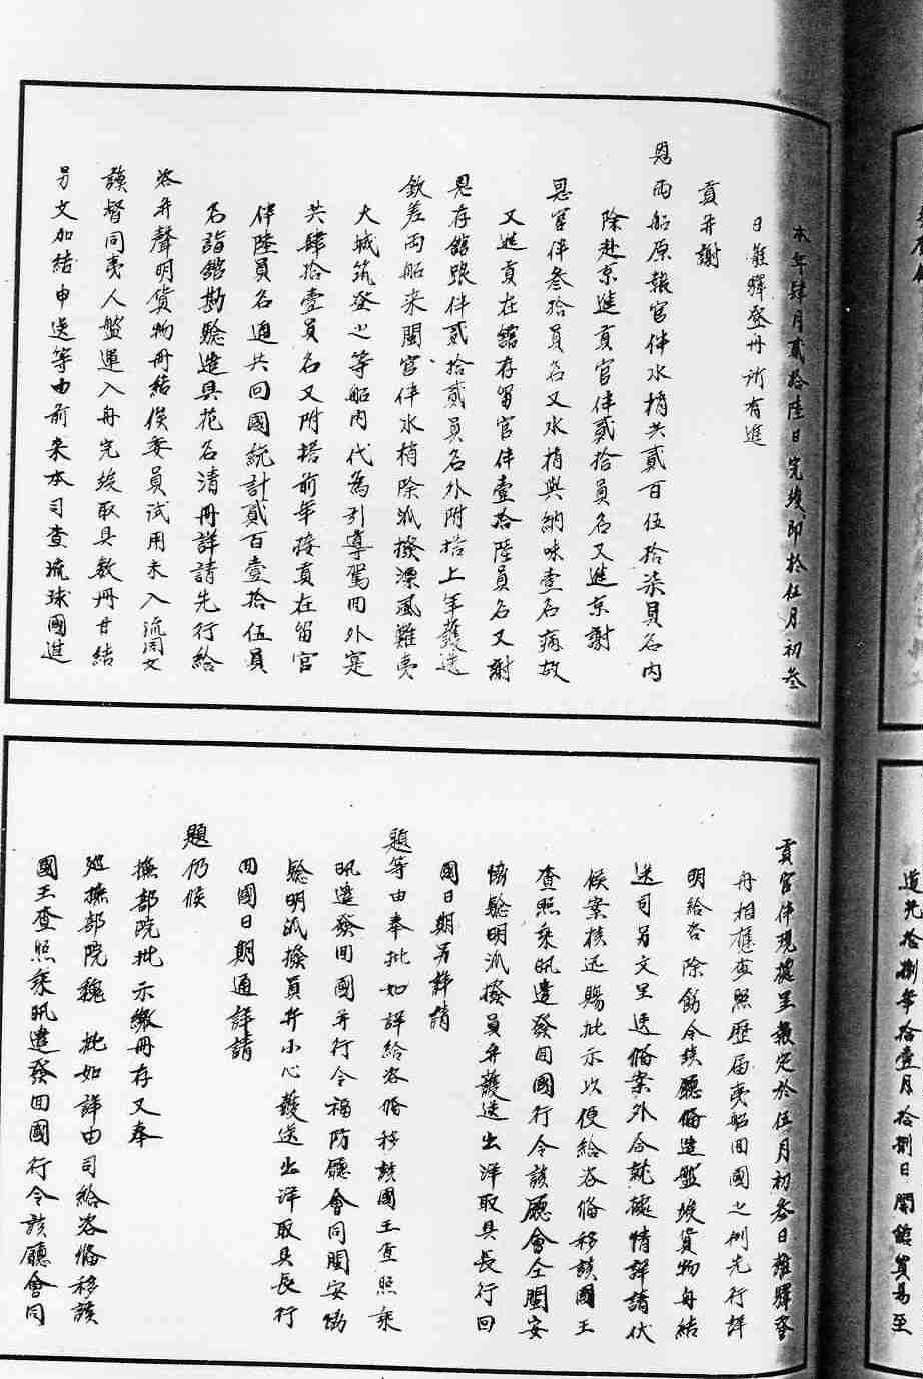 本年肆月貳拾陸日完竣即於伍月初叁
日離驛登舟所有進
貢并謝
恩兩船原報官伴水梢共貳百伍拾柒員名內
除赴京進貢官伴貳拾員名又進京謝
恩官伴叁拾員名又水梢與納味壹名病故
又進貢在館存留官伴壹拾陸員名又謝
恩存館跟伴貳拾貳員名外附搭上年護送
欽差兩船來閩官伴水梢除派撥漂風難夷
大城筑登之等船內代為引導駕回外寔
共肆拾壹員名又附搭前年接貢在留官
伴陸員名通共回國統計貳百壹拾伍員
名詣館勘驗造具花名清冊詳請先行給
咨并聲明貨物冊結俟委員試用未入流周文
謨督同夷人盤運入舟完竣取具數冊甘結
另文加結申送等由前來本司查琉球國進
貢官伴現據呈報定於伍月初叁日離驛登
舟相應查照歷屆夷船回國之例先行詳
明給咨除飭令該廳俻造盤竣貨物冊結
送司另文呈送俻案外合就確情詳請伏
候案核迅賜批示以便給咨俻移該國王
查照乘汛遣發回國行令該廳會仝閩安
協驗明派撥員弁護送出洋取具長行回
國日期另詳請
題等由奉批如詳給咨俻移該國王查照乘
汛遣發回國并行令福防廳會同閩安協
驗明派撥員弁小心護送出洋取具長行
回國日期通詳請
題仍候
撫部院批示繳冊存又奉
廵撫部院魏 批如詳由司給咨俻移該
國王查照乘汛遣發回國行令該廳會同
道光拾捌年拾壹月拾捌日開館貿易至